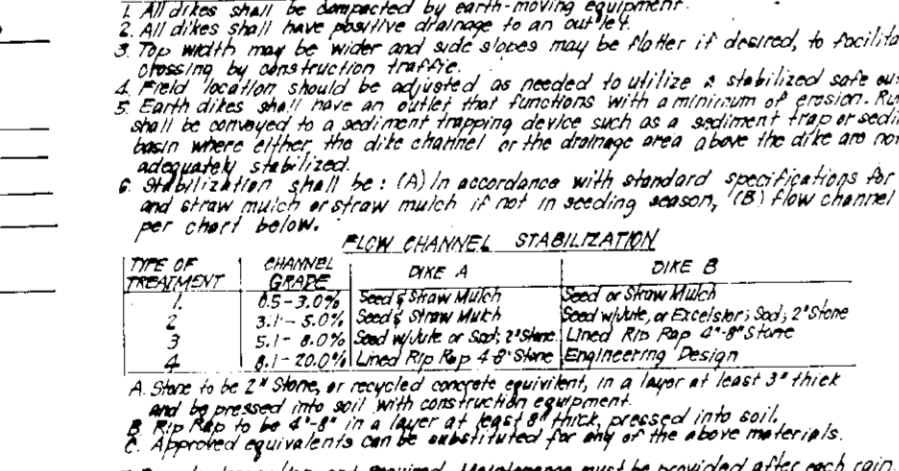 1. All dikes shall be compacted by earth-moving equipment.
2. All dikes shall have positive drainage to an outlet.
3. Top width may be wider and side slopes may be flatter if desired, to facilita
crossing by construction traffic.
4. Field location should be adjusted as needed to utilize a stabilized safe ou
5. Earth dikes shall have an outlet that functions with a minimum of erosion. Ru
shall be conveyed to a sediment trapping device such as a sediment trap or sedi
basin where either the dike channel or the drainage area above the dike are no
adequately stabilized.
6. Stabilization shall be: (A) In accordance with standard specifications for
and straw mulch or straw mulch if not in seeding season, (B) flow channel
per chart below.
FLOW CHANNEL STABILIZATION
TYPE OF TREATMENT CHANNEL GRADE DIKE A DIKE B
1. 0.5-3.0% Seed & Straw Mulch Seed or Straw Mulch
2 3.1-5.0% Seed & Straw Mulch Seed w/Jute, or Excelsior; Sod; 2" Stone
3 5.1-8.0% Seed w/Jute or Sod; 2" Stone Lined Rip Rap 4"-8" Stone
4 8.1-20.0% Lined Rip Rap 4-8" Stone Engineering Design
A. Stone to be 2" Stone, or recycled concrete equivilent, in a layer at least 3" thick
and be pressed into soil with construction equipment.
B. Rip Rap to be 4"-8" in a layer at least 8" thick, pressed into soil.
C. Approved equivalents can be substituted for any of the above materials.
required. Maintenance must be provided after each rain.